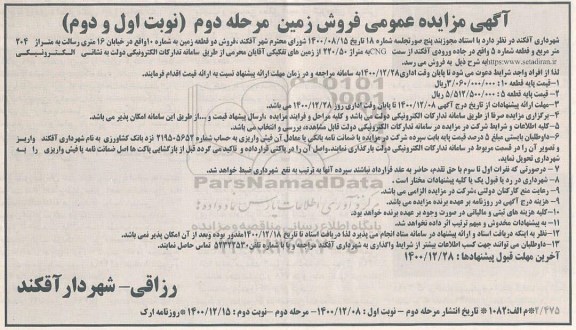 آگهی مزایده عمومی فروش زمین مرحله دوم (نوبت اول و دوم)
شهرداری آقکند در نظر دارد با استناد مجوزبند پنج صورتجلسه شماره ۱۸ تاریخ ۱۴۰۰/۰۸/۱۵ شورای محترم شهر آقکند ،فروش دو قطعه زمین به شماره ۱۰واقع در خیابان ۱۶ متری رسالت به متراژ ۲۰۴
متر مربع و قطعه شماره ۵ واقع در جاده ورودی آقکند از سمت CNGبه متراژ ۲۲۰/۵۰ از زمین های تفکیکی آقایان محرمی از طریق سامانه تدارکات الکترونیکی دولت به نشانی الکترونیکی
https:www.setadiran.irبه شرح ذیل به فروش می رسد.
لذا از افراد واجد شرایط دعوت می شود تا پایان وقت اداری۱۴۰۰/۱۲/۲۸به سامانه مراجعه و در زمان مهلت ارائه پیشنهاد نسبت به ارائه قیمت اقدام فرمایند.
۱–قیمت پایه قطعه ۱۰: ۳/۰۶۰/۰۰۰/۰۰۰ریال
۲–قیمت پایه قطعه ۵ : ۵/۵۱۲/۵۰۰/۰۰۰ ریال
۳–مهلت ارائه پیشنهادات از تاریخ درج آگهی ۱۴۰۰/۱۲/۰۸ تا پایان وقت اداری روز ۱۴۰۰/۱۲/۲۸ می باشد.
۴–برگزاری مزایده صرفا از طریق سامانه تدارکات الکترونیکی دولت می باشد و کلیه مراحل و فرایند مزایده ،ارسال پیشنهاد قیمت و ...از طریق این سامانه امکان پذیر می باشد.
۵–کلیه اطلاعات و شرایط شرکت در مزایده در سامانه تدارکات الکترونیکی دولت قابل مشاهده، بررسی و انتخاب می باشد.
۶–داوطلبان بایستی مبلغ ۵ درصد قیمت پایه بابت سپرده شرکت در مزایده یا ضمانت نامه بانکی یا معادل آن فیش واریزی به حساب شماره ۲۱۹۵۰۵۶۵۲ نزد بانک کشاورزی به نام شهرداری آقکند واریز
و تصویر آن را در قسمت مربوط در سامانه تدارکات الکترونیکی دولت بارگذاری نمایند.واصل آن را در پاکتی قرارداده و تاکید می گردد قبل از بازگشایی پاکت ها اصل ضمانت نامه یا فیش واریزی را به
شهرداری تحویل نماید.
۷ – درصورتی که نفرات اول تا سوم با حق تقدم، حاضر به عقد قرارداد نباشند سپرده آنها به ترتیب به نفع شهرداری ضبط خواهد شد.
۸ – شهرداری در رد یا قبول یک یا کلیه پیشنهادات مختار است .
۹– رعایت منع کارکنان دولتی ،شرکت در مزایده الزامی می باشد.
۱۰– هزینه درج آگهی در روزنامه بر عهده برنده مزایده می باشد.
۱۰–کلیه هزینه های ثبتی و مالیاتی در صورت وجود بر عهده برنده خواهد بود.
۱۱– به پیشنهادات مخدوش و مبهم ترتیب اثر داده نخواهد شد.
۱۲–نظر به اینکه دریافت اسناد و ارائه پیشنهاد در سامانه ستاد انجام می پذیرد لذا دریافت اسناد تا تاریخ ۱۴۰۰/۱۲/۱۸مقدور بوده وبعد از آن امکان پذیر نمی باشد.
۱۳–داوطلبان می توانند جهت کسب اطلاعات بیشتر از شرایط واگذاری به شهرداری آقکند مراجعه و یا با شماره تلفن:۵۲۳۳۲۵۳۰ تماس حاصل نمایند.
آخرین مهلت قبول پیشنهادها : ۱۴۰۰/۱۲/۲۸
رزاقی– شهردار آقکند
۲/۴۷۵*م الف:۱۰۸۲* تاریخ انتشار مرحله دوم – نوبت اول : ۱۴۰۰/۱۲/۰۸– مرحله دوم –نوبت دوم : ۱۴۰۰/۱۲/۱۵ *روزنامه ارک
ParsNamadData